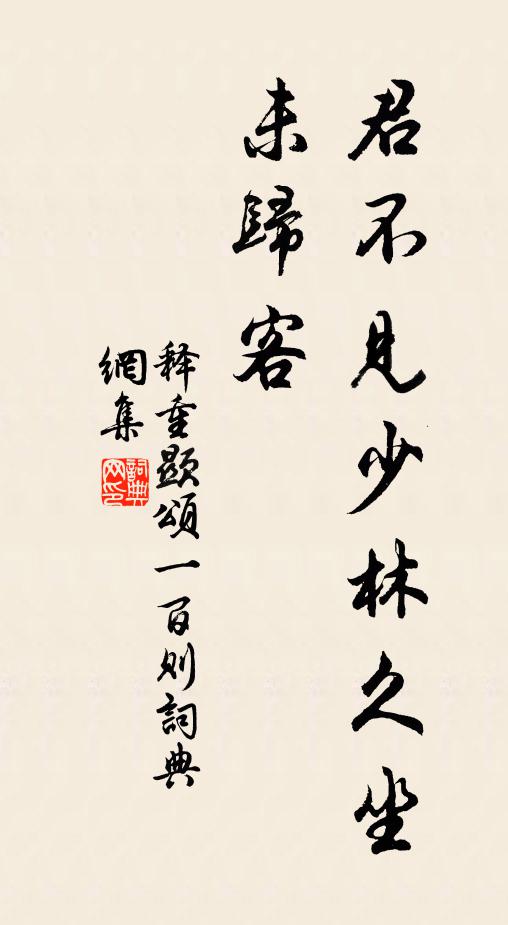 君不見少林久坐
未歸客
释重顯頌一百则詞典
網集
詞典网印